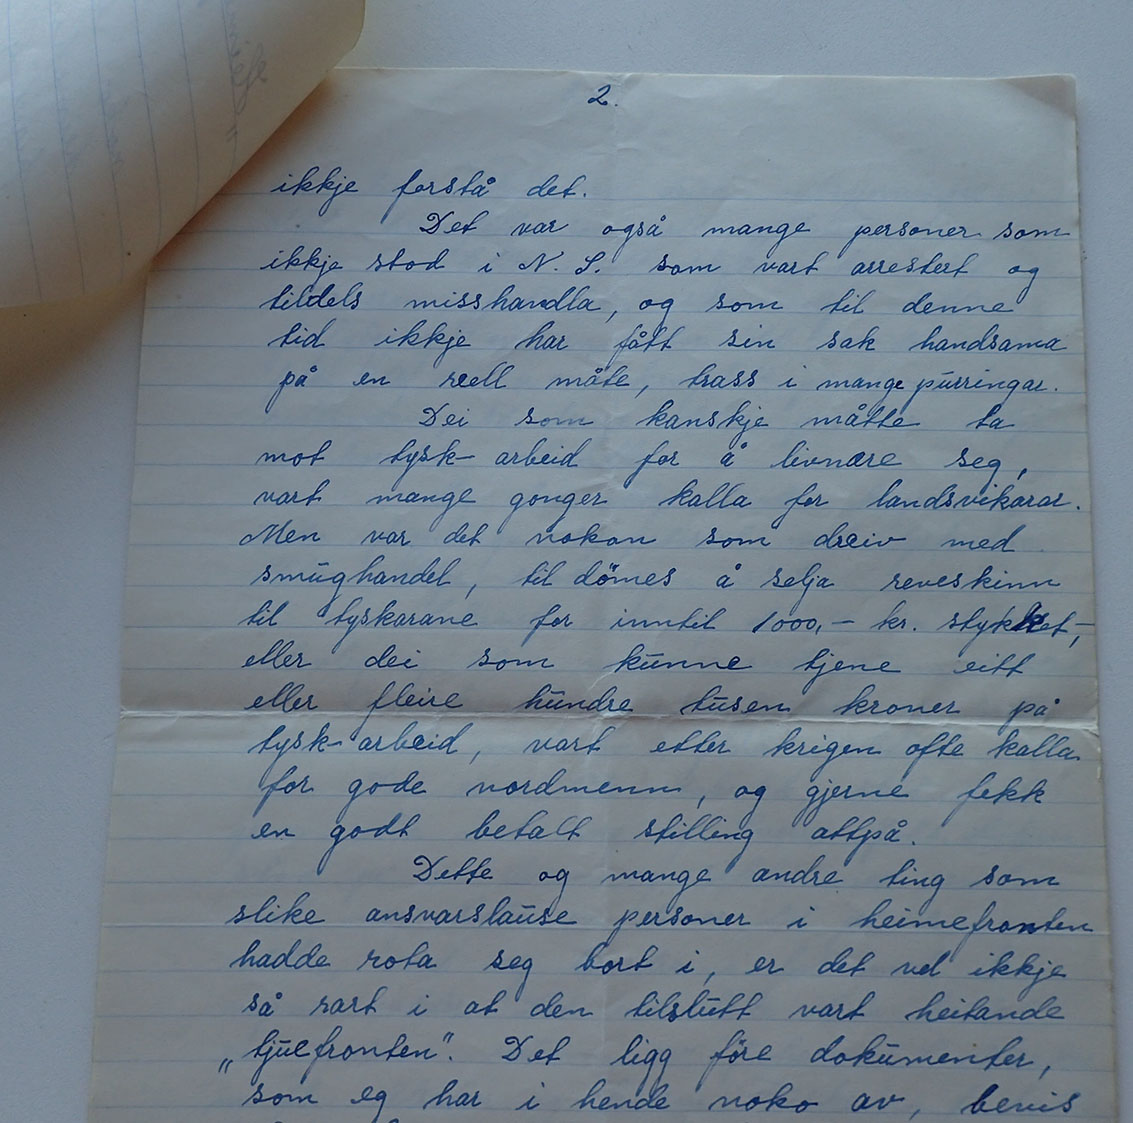 2.
ikkje forstå det.
Det var også mange personer som
ikkje stod i N. S. som vart arrestert og
tildels misshandla, og som til denne
tid ikkje har fått sin sak handsama
på en reell måte, trass i mange purringar.
Dei som kanskje måtte ta
mot tysk-arbeid for å livnære seg,
vart mange gonger kalla for landsvikarar.
Men var det nokon som dreiv med
smughandel, til dömes å selja reveskinn
til tyskarane for inntil 1000,- kr. stykket,-
eller dei som kunne tjene eitt
eller fleire hundre tusen kroner på
tysk-arbeid, vart etter krigen ofte kalla
for gode nordmenn, og gjerne fekk
en godt betalt stilling attpå.
Dette og mange andre ting som
slike ansvarslause personer i heimefronten
hadde rota seg bort i, er det vel ikkje
så rart i at den tilslutt vart heitande
„tjuefronten". Det ligg före dokumenter,
som eg har i hende noko av, bevis